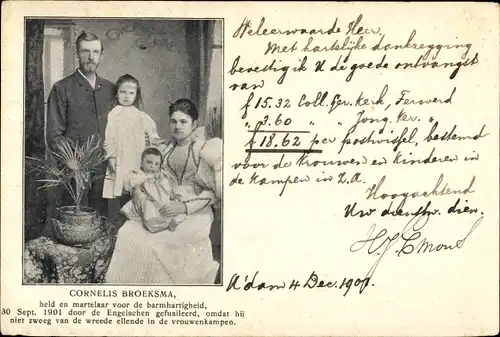 Weleerwaarde Heer,
Met hartelijke dankzegging
bevestig ik U de goede ontvangst
van
f 15.32 Coll. Ger. Kerk, Ferwerd
" 3.60 " " Jong. Ver. "
f 18.62 per postwissel, bestemd
voor de vrouwen en kinderen in
de kampen in Z.A.
Hoogachtend
Uw dienstw. dien.
A'dam 4 Dec. 1901.
CORNELIS BROEKSMA,
held en martelaar voor de barmhartigheid,
30 Sept. 1901 door de Engelschen gefusileerd, omdat hij
niet zweeg van de wreede ellende in de vrouwenkampen.